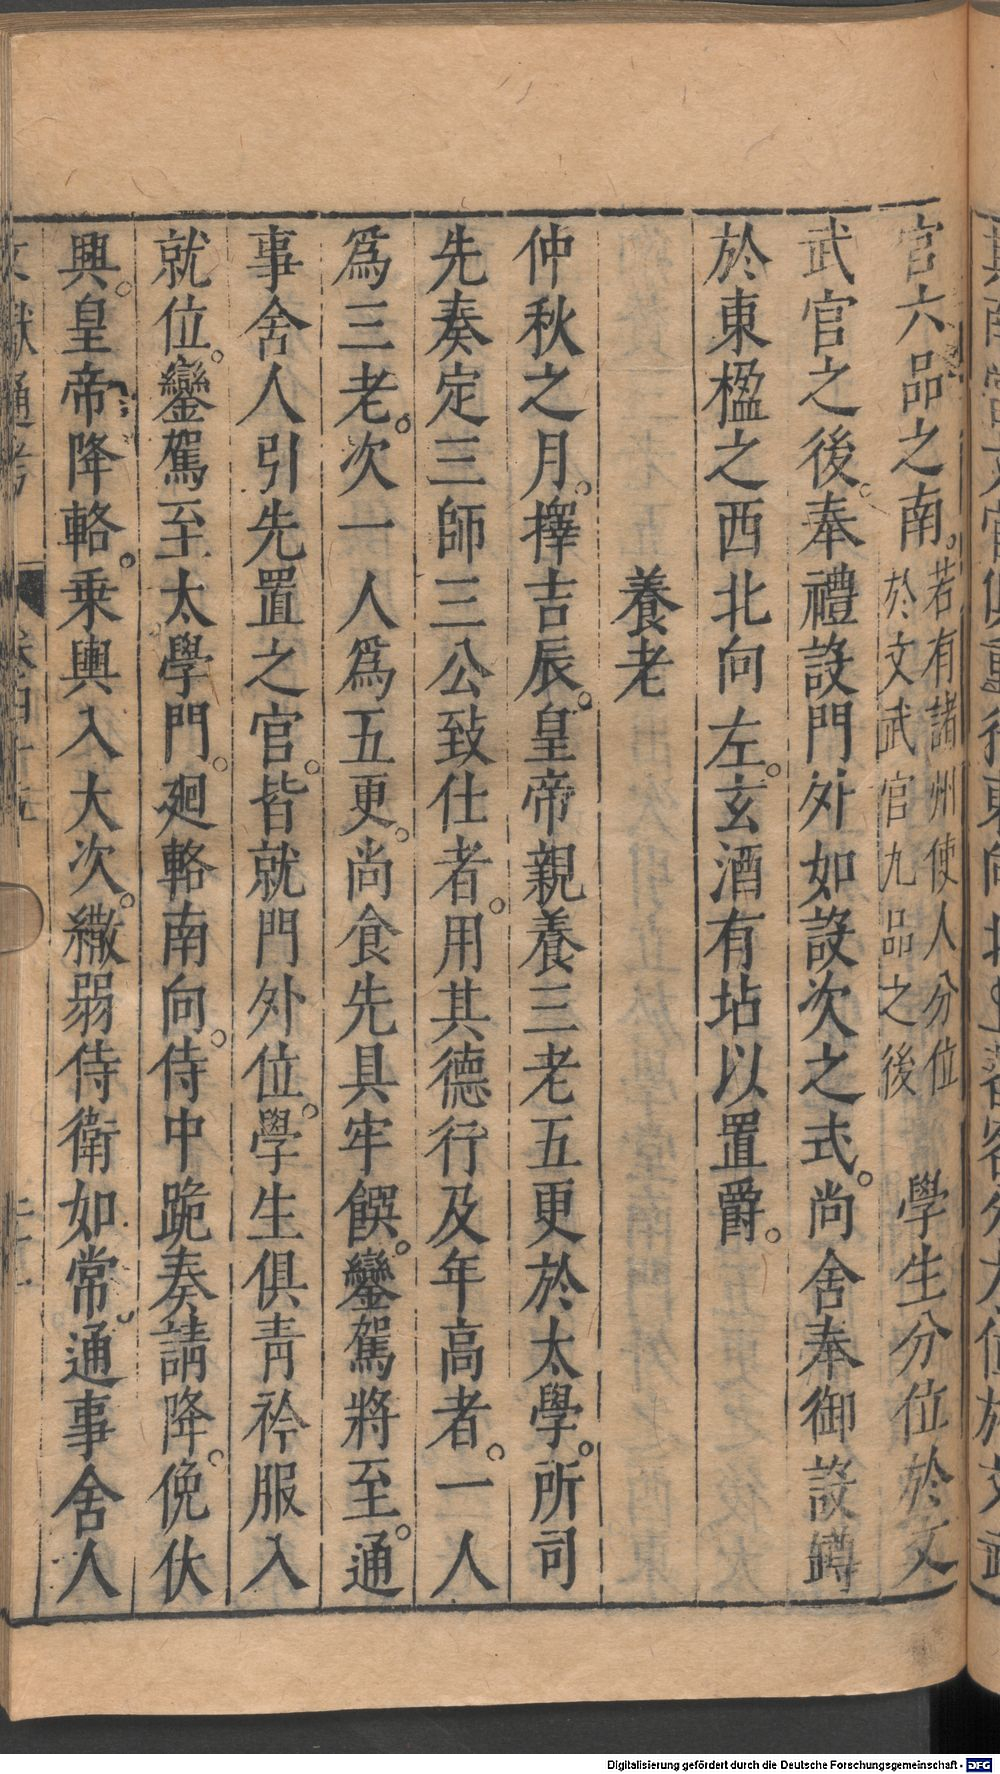 官六品之南。若有諸州使人分位於文武官九品之後 學生分位於文
武官之後。奉禮設門外如設次之式。尚舍奉御設罇
於東楹之西北向左。玄酒有坫以置爵。
養老
仲秋之月。擇吉辰。皇帝親養三老五更於太學。所司
先奏定三師三公致仕者。用其德行及年高者。一人
爲三老。次一人爲五更。尚食先具牢饌。鑾駕將至。通
事舍人引先置之官。皆就門外位。學生俱青衿服入
就位。鑾駕至太學門。廻輅南向。侍中跪奏請降。俛伏
興。皇帝降輅。乗輿入大次。繖弱侍衛如常。通事舍人
文獻通考 卷四十
Digitalisierung gefördert durch die Deutsche Forschungsgemeinschaft - DFG